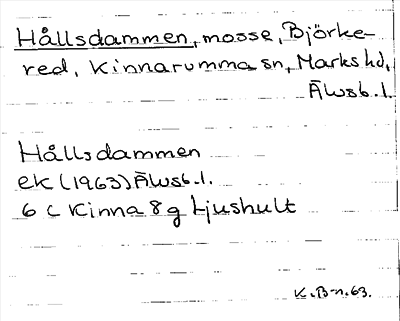 Hållsdammen, mosse, Björke-
red, Kinnarumma sn, Marks hd,
Älvsb. l.
Hållsdammen
ek (1963) Älvsb. l.
6 C Kinna 8 g Ljushult
K. B-n. 63.